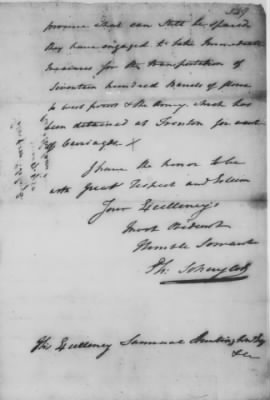 349
province that can still be spared
they have engaged to take Immediate
Measures for the transportation of
Seventeen hundred Barrels of flour
to west point & the Army which has
been detained at Trenton for want
of Carriage. X
I have the honor to be
with great respect and Esteem
Your Excellency's
most Obedient
Humble Servant
Ph: Schuyler
His Excellency Samuel Huntington Esq
&c